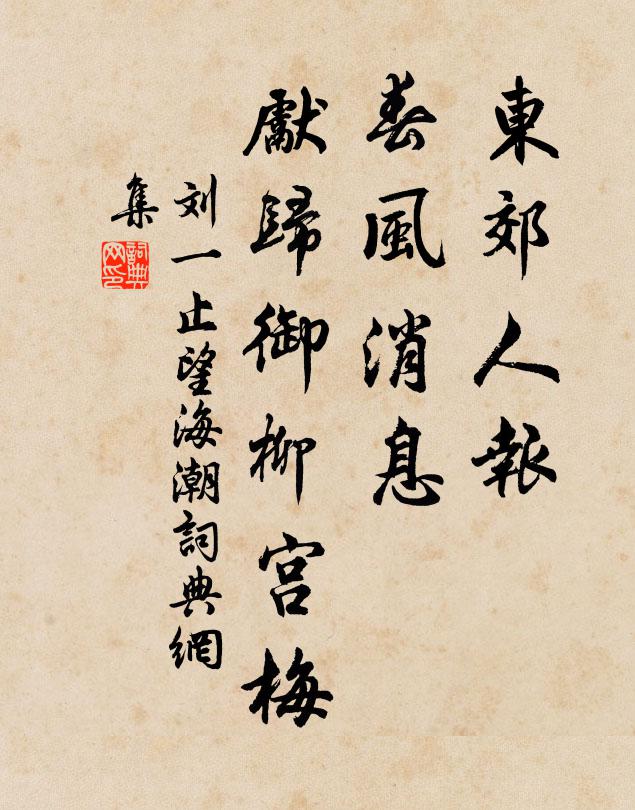 東郊人報
春風消息
獻歸御柳宫梅
刘一止望海潮詞典網
集
詞典網印